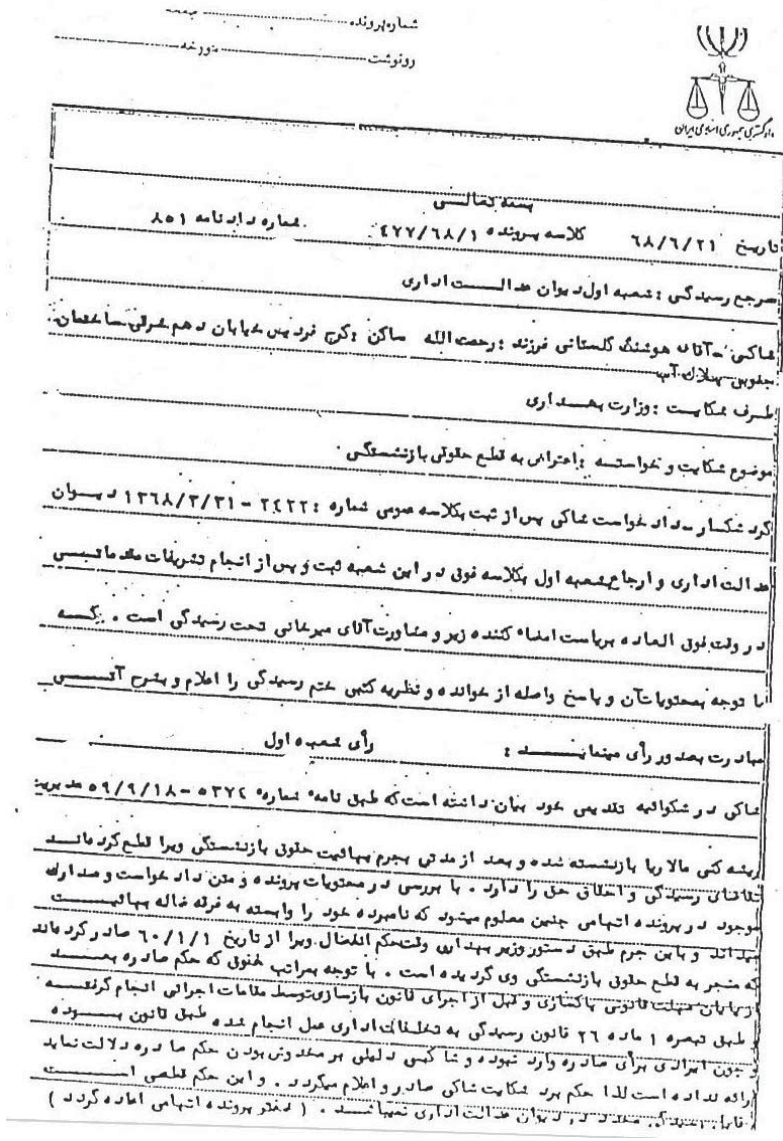 شماره پرونده
رونوشت مورخه
دادگستری جمهوری اسلامی ایران
بسمه تعالی
تاریخ ۶۸/۶/۲۱ کلاسه پرونده ۴۷۷/۶۸/۱ شماره دادنامه ۸۵۱
مرجع رسیدگی : شعبه اول دیوان عدالت اداری
شاکی - آقای هوشنگ گلستانی فرزند : رحمت الله ساکن : کرج فردیس خیابان دهم شرقی ساختمان
جنوبی پلاک
طرف شکایت : وزارت بهداری
موضوع شکایت و خواسته : اعتراض به قطع حقوق بازنشستگی
گردشکار - دادخواست شاکی پس از ثبت بکلاسه عمومی شماره : ۲۴۲۲ - ۱۳۶۸/۳/۳۱ دیوان
عدالت اداری و ارجاع بشعبه اول بکلاسه فوق در این شعبه ثبت و پس از انجام تشریفات مقدماتی
در وقت فوق العاده بریاست امضاء کننده زیر و مشاورت آقای میرخانی تحت رسیدگی است . که
با توجه بمحتویات آن و پاسخ واصله از خوانده و نظریه کتبی ختم رسیدگی را اعلام و بشرح آتی
مبادرت بصدور رأی مینماید : رأی شعبه اول
شاکی در شکوائیه تقدیمی خود بیان داشته است که طبق نامه شماره ۵۳۷۴ - ۵۹/۹/۱۸ مدیریت
ریشه کنی مالاریا بازنشسته شده و بعد از مدتی بجرم بهائیت حقوق بازنشستگی ویرا قطع کرده اند
تقاضای رسیدگی و احقاق حق را دارد . با بررسی در محتویات پرونده و متن دادخواست و مدارک
موجود در پرونده اتهامی چنین معلوم میشود که نامبرده خود را وابسته به فرقه ضاله بهائیت
میداند و باین جرم طبق دستور وزیر بهداری وقت حکم انفصال ویرا از تاریخ ۶۰/۱/۱ صادر کرده اند
که منجر به قطع حقوق بازنشستگی وی گردیده است . با توجه بمراتب فوق که حکم صادره بعد
از پایان مهلت قانونی پاکسازی و قبل از اجرای قانون بازسازی توسط مقامات اجرائی انجام گرفته
و طبق تبصره ۱ ماده ۲۶ قانون رسیدگی به تخلفات اداری عمل انجام شده طبق قانون بوده
و چون ایرادی برأی صادره وارد نبوده و شاکی دلیلی بر مخدوش بودن حکم صادره دلالت نماید
ارائه نداده است لذا حکم برد شکایت شاکی صادر و اعلام میگردد . و این حکم قطعی است
و قابل رسیدگی مجدد در دیوان عدالت اداری نمیباشد . ( دفتر پرونده اتهامی اعاده گردد )